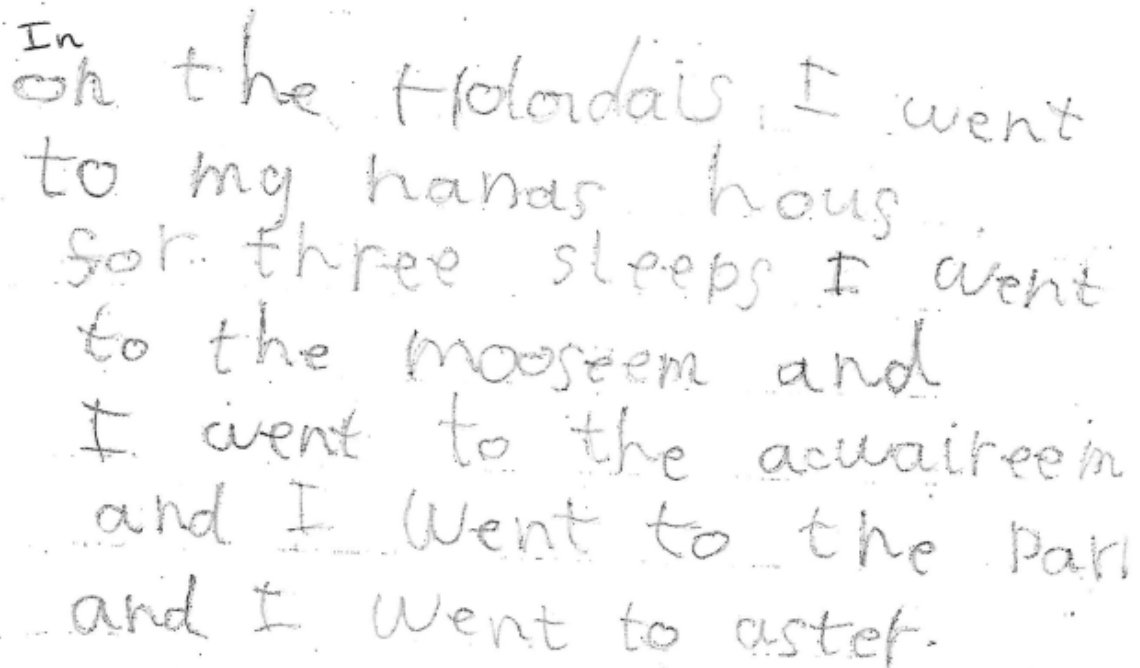 In
on the Holodais I went
to my nanas hous
for three sleeps I went
to the mooseem and
I went to the acwaireem
and I went to the Park
and I went to aster.